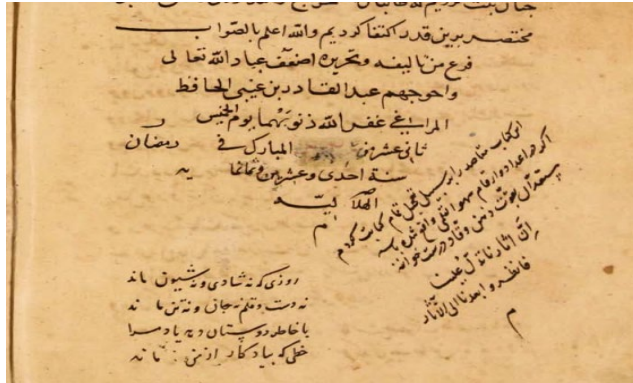 مختصر برین قدر اکتفا کردیم والله اعلم بالصواب
فرغ من تالیفه وتحریره اضعف عباد الله تعالی
واحوجهم عبد القادر بن غیبی الحافظ
المراغی غفر الله ذنوبهما یوم الخمیس
ثانی عشرین المبارک فی رمضان
سنة احدی وعشرین وثمانمایه
الهلالیه
این کتاب مقاصد را بر سبیل تعجیل تمام کتابت کردم
اگر در اعداد و ارقام سهو القلمی واقع شده باشد
ذهنی وقاد درست خوانند
ان آثارنا تدل علینا
فانظروا بعدنا الی الآثار
م
روزی که نه شادی و نه شیون ماند
نه دست و قلم نه جان و نه تن ماند
با خاطر دوستان دهد یاد مرا
خطی که بیادگار از من ماند